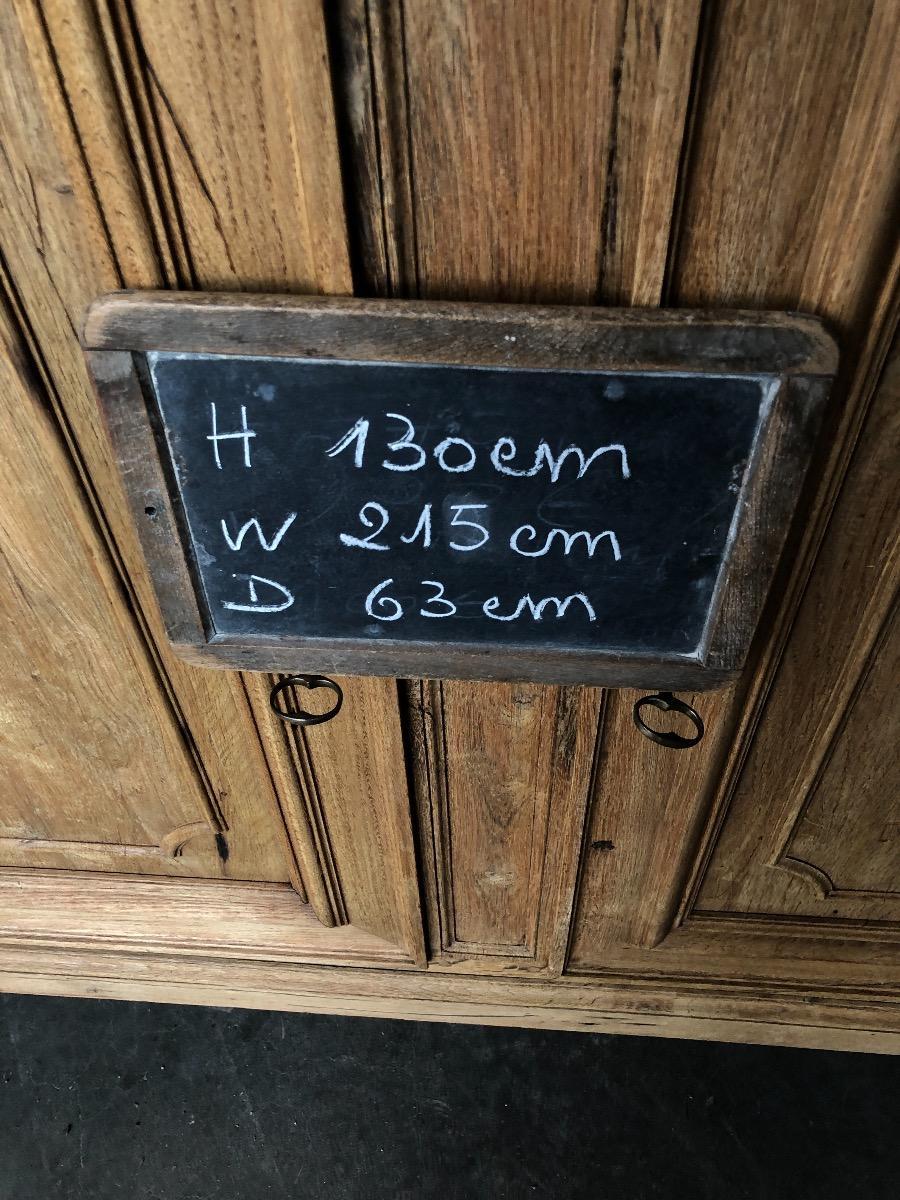 H 130cm
W 215cm
D 63cm